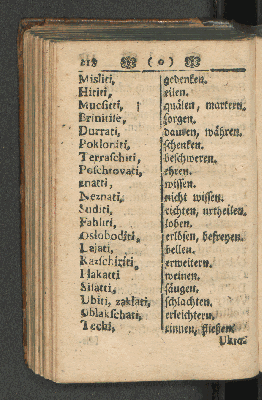 218 ( o )
Misliti, gedenken.
Hititi, eilen.
Mucsiti, quälen, martern.
Brinitise, sorgen.
Durrati, dauren, währen.
Pokloniti, schenken.
Terraschiti, beschweren.
Poschtovati, ehren.
znatti, wissen.
Neznati, nicht wissen.
Suditi, richten, urtheilen.
Fahliti, loben.
Osloboditi, erlösen, befreyen.
Lajati, bellen.
Razschiriti, erweitern.
Plakatti, weinen.
Sisatti, säugen.
Ubiti, zaklati, schlachten.
Oblakschati, erleichtern.
Techi, rinnen, fließen.